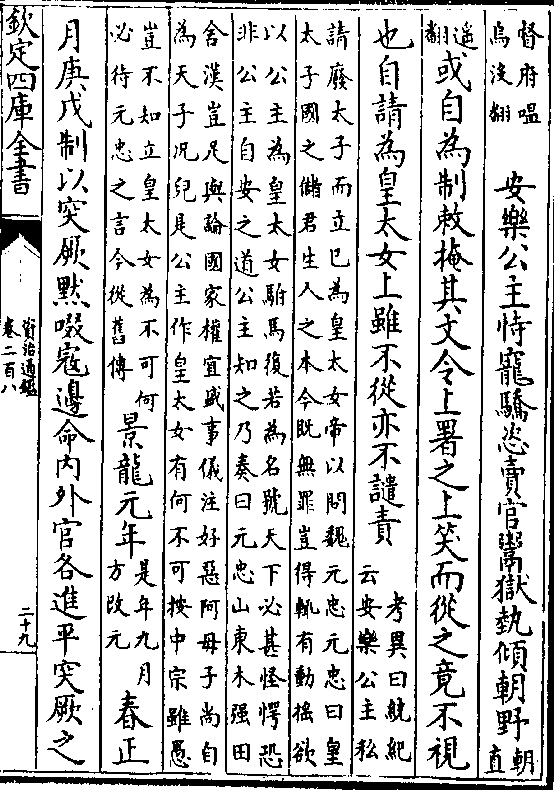 督府嗢
鳥没翻
安樂公主恃寵驕恣賣官鬻獄勢傾朝野
朝
直
遥
翻
或自為制敕掩其文令上署之上笑而從之竟不視
也自請為皇太女上雖不從亦不譴責
考異曰統紀
云安樂公主私
請廢太子而立已為皇太女帝以問魏元忠元忠曰皇
太子國之儲君生人之本今既無罪豈得輒有動摇欲
以公主為皇太女駙馬復若為名號天下必甚怪愕恐
非公主自安之道公主知之乃奏曰元忠山東木强田
舍漢豈足與論國家權宜盛事儀注好惡阿母子尚自
為天子况兒是公主作皇太女有何不可按中宗雖愚
豈不知立皇太女為不可何
必待元忠之言今從舊傳
景龍元年
是年九月
方改元
春正
月庚戌制以突厥默啜寇邊命内外官各進平突厥之
欽定四庫全書
資治通鑑
卷二百八
二十九